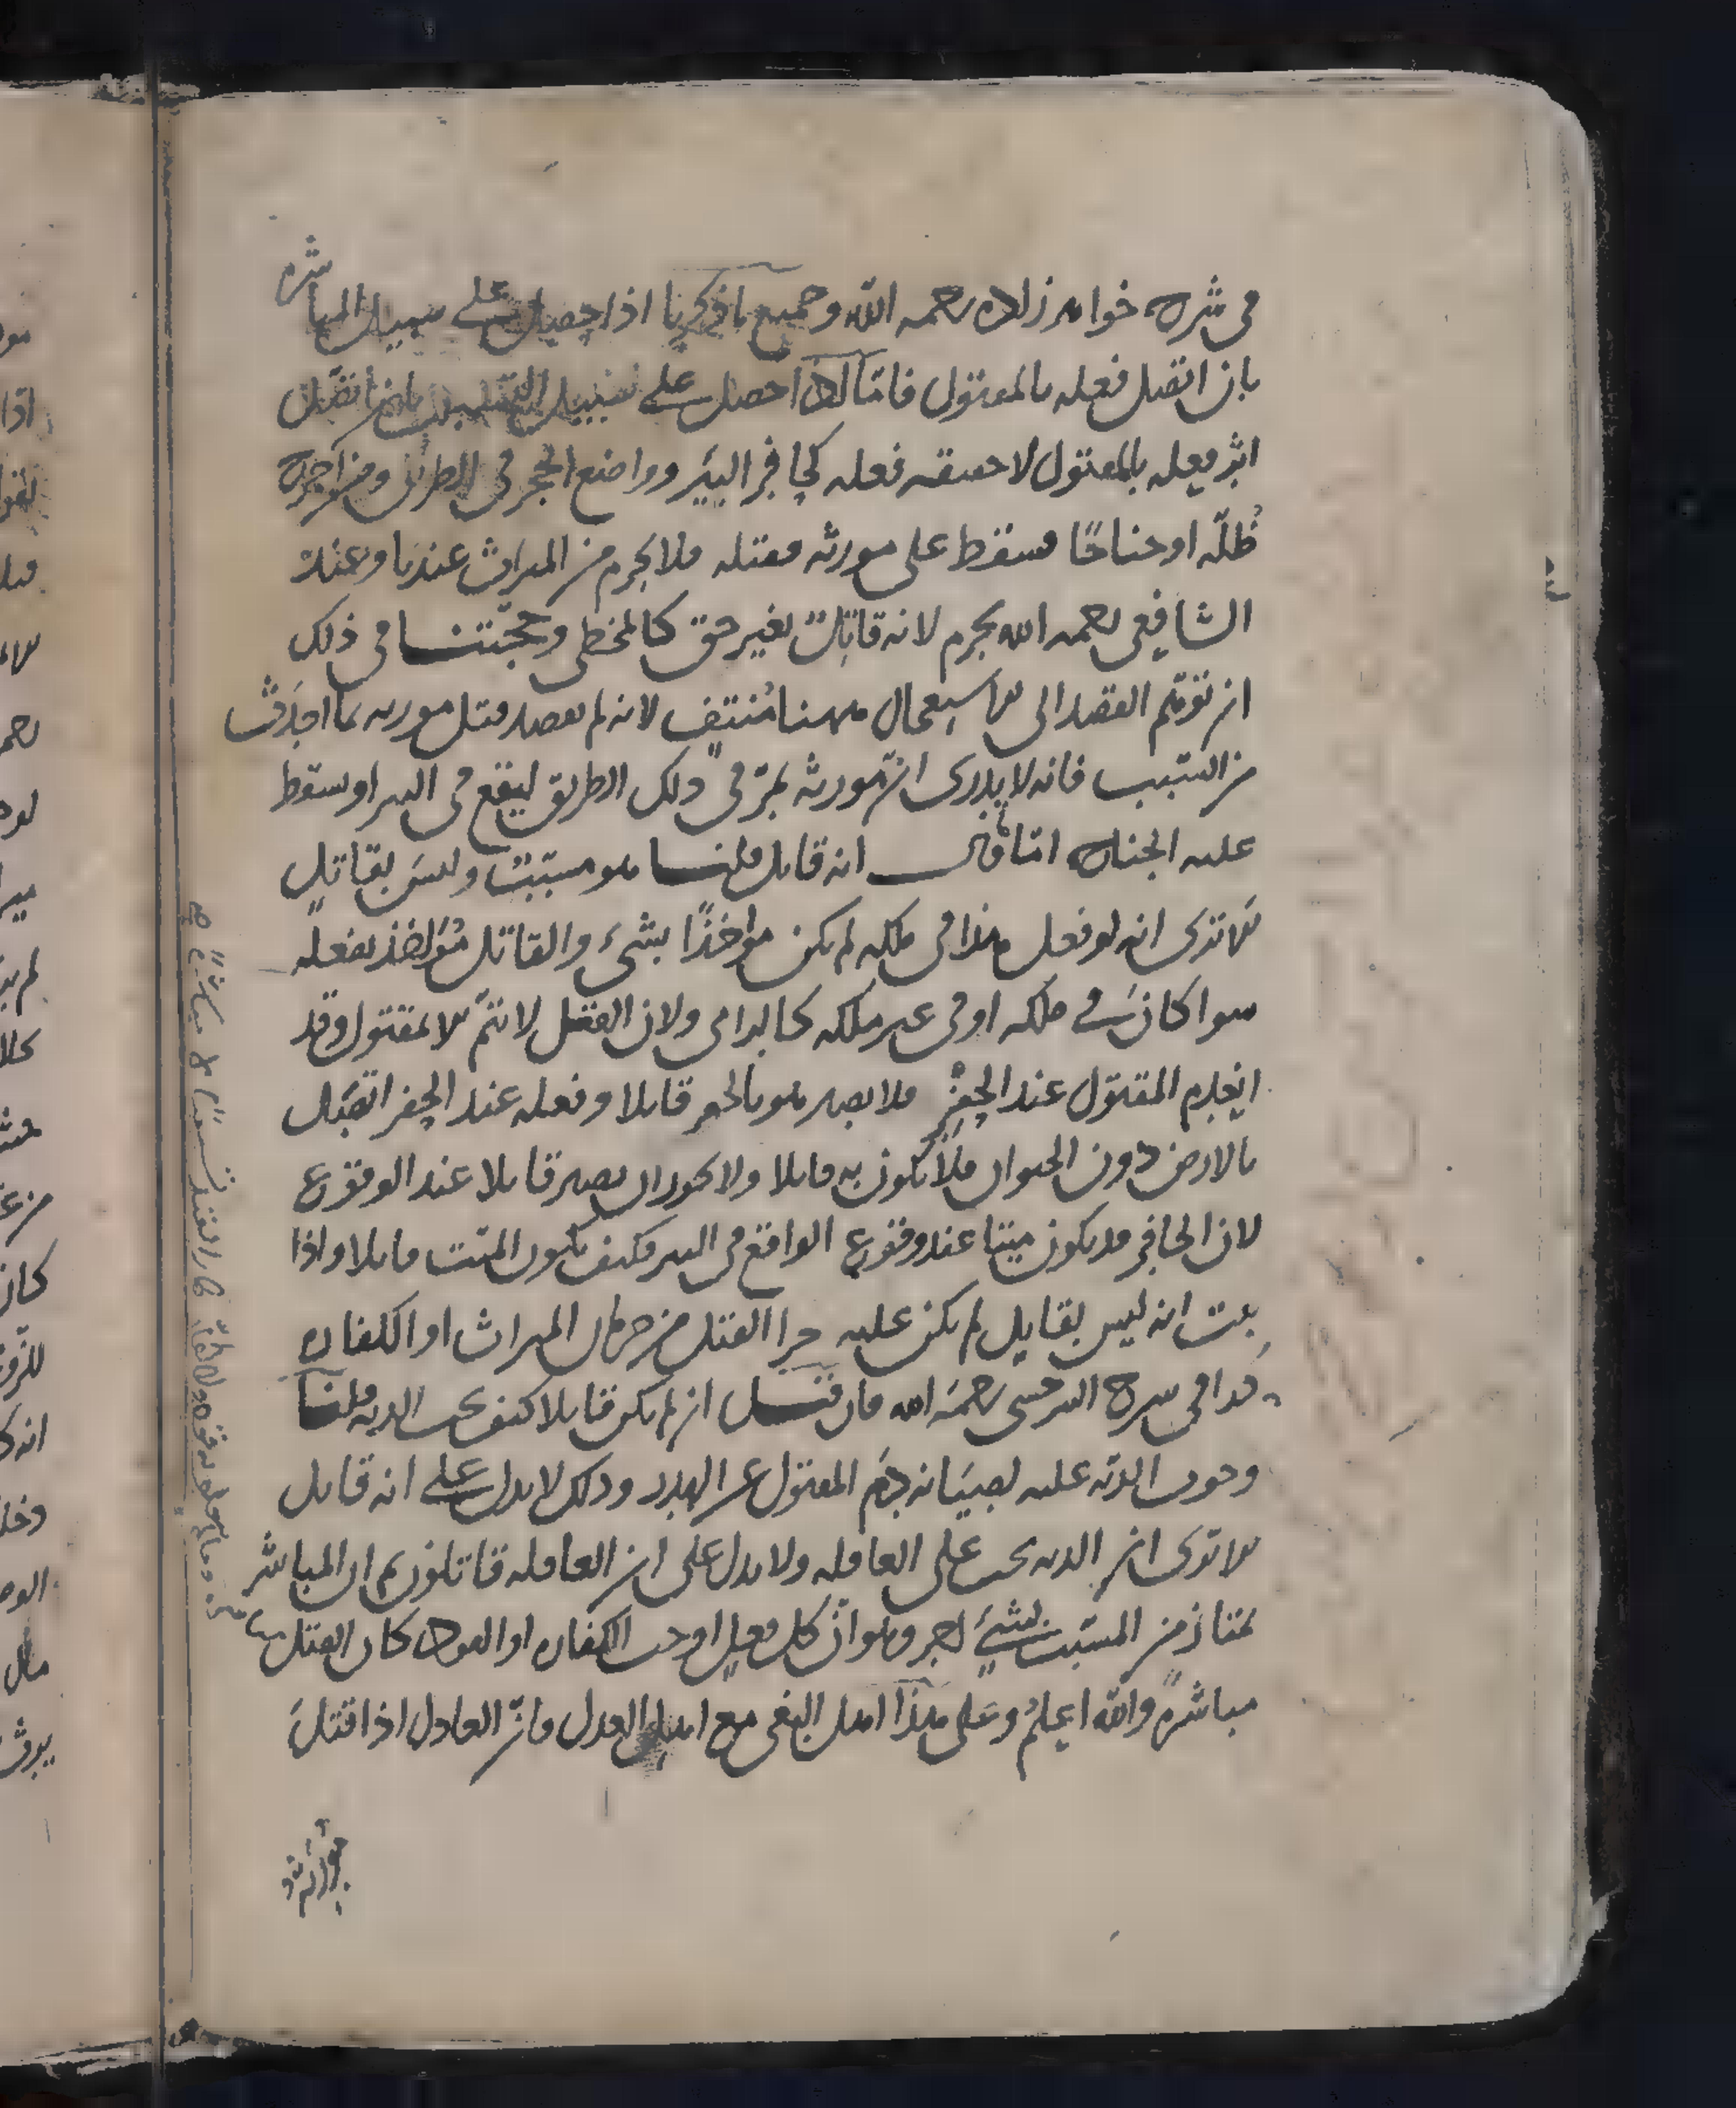 في شرح خواهر زاده رحمه الله وجميع ما ذكرنا اذا حصل على سبيل المباشرة
بان اتصل فعله بالمقتول فاما اذا حصل على سبيل التسبيب بان اتصل
اثر فعله بالمقتول لا حقيقة فعله كحافر البير وواضع الحجر في الطريق ومن اخرج
ظلّة او جناحًا فسقط على مورثه فقتله فلا يحرم من الميراث عندنا وعند
الشافعي رحمه الله يحرم لانه قاتل بغير حق كالمخطي وحجتنا في ذلك
ان توهم القصد الى الاستعجال ههنا مُنتفٍ لانه لم يقصد قتل مورثه بما احدث
من السبب فانه لا يدري ان مورثه يمرّ في ذلك الطريق ليقع في البير او سقط
عليه الجناح اما قال انه قاتل قلنا هو مسبّب وليس بقاتل
الا ترى انه لو فعل هذا في ملكه لم يكن مواخذًا بشيء والقاتل مُؤاخذ بفعله
سوا كان في ملكه او في غير ملكه كالرامي ولان القتل لا يتم الا بمقتول وقد
انعدم المقتول عند الحفر فلا يصير هو بالحفر قاتلا وفعله عند الحفر اتصل
بالارض دون الحيوان فلا يكون به قاتلا ولا يجوز ان يصير قاتلا عند الوقوع
لان الحافر قد يكون ميتا عند وقوع الواقع في البير فكيف يكون الميت قاتلا واذا
ثبت انه ليس بقاتل لم يكن عليه جزا القتل من حرمان الميراث او الكفارة
كذا في شرح السرخسي رحمه الله فان قيل ان لم يكن قاتلا كيف يجب الدية قلنا
وجوب الدية عليه لصيانة دم المقتول عن الهدر وذلك لا يدل على انه قاتل
الا ترى ان الدية يجب على العاقلة ولا يدل على ان العاقلة قاتلون ثم ان المباشر
يمتاز من المسبب بشيء اخر وهو ان كل فعل اوجب الكفارة او القود كان القتل بها
مباشرة والله اعلم وعلى هذا اهل البغي مع اهل العدل فان العادل اذا قتل